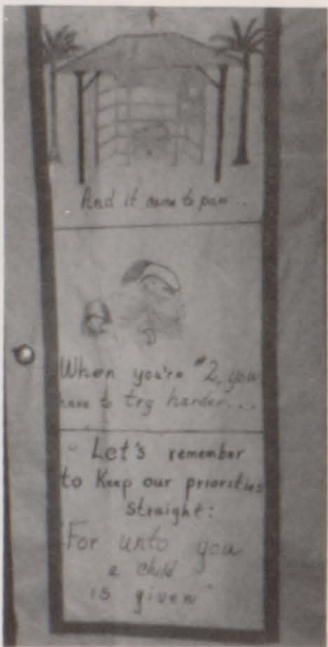 And it came to pass...
When you're #2, you
have to try harder...
Let's remember
to Keep our priorities
straight:
"For unto you
a child
is given"